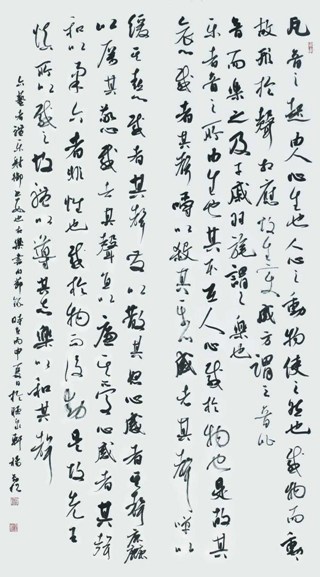 凡音之起由人心生也人心之動物使之然也感物而動
故形於聲相應故生变成方謂之音比
音而樂之及干戚羽旄謂之樂也
乐者音之所由生也其本在人心感於物也是故其
哀心感者其聲噍以殺其樂心感者其聲嘽以
缓其喜心感者其聲发以散其怒心感者其聲麤
以厲其敬心感者其聲直以廉其愛心感者其聲
和以柔六者非性也感於物而後動是故先王
慎所以感之故禮以導其志樂以和其聲
六藝者禮乐射御书数也右樂書句節録時在丙申夏日於軒楊